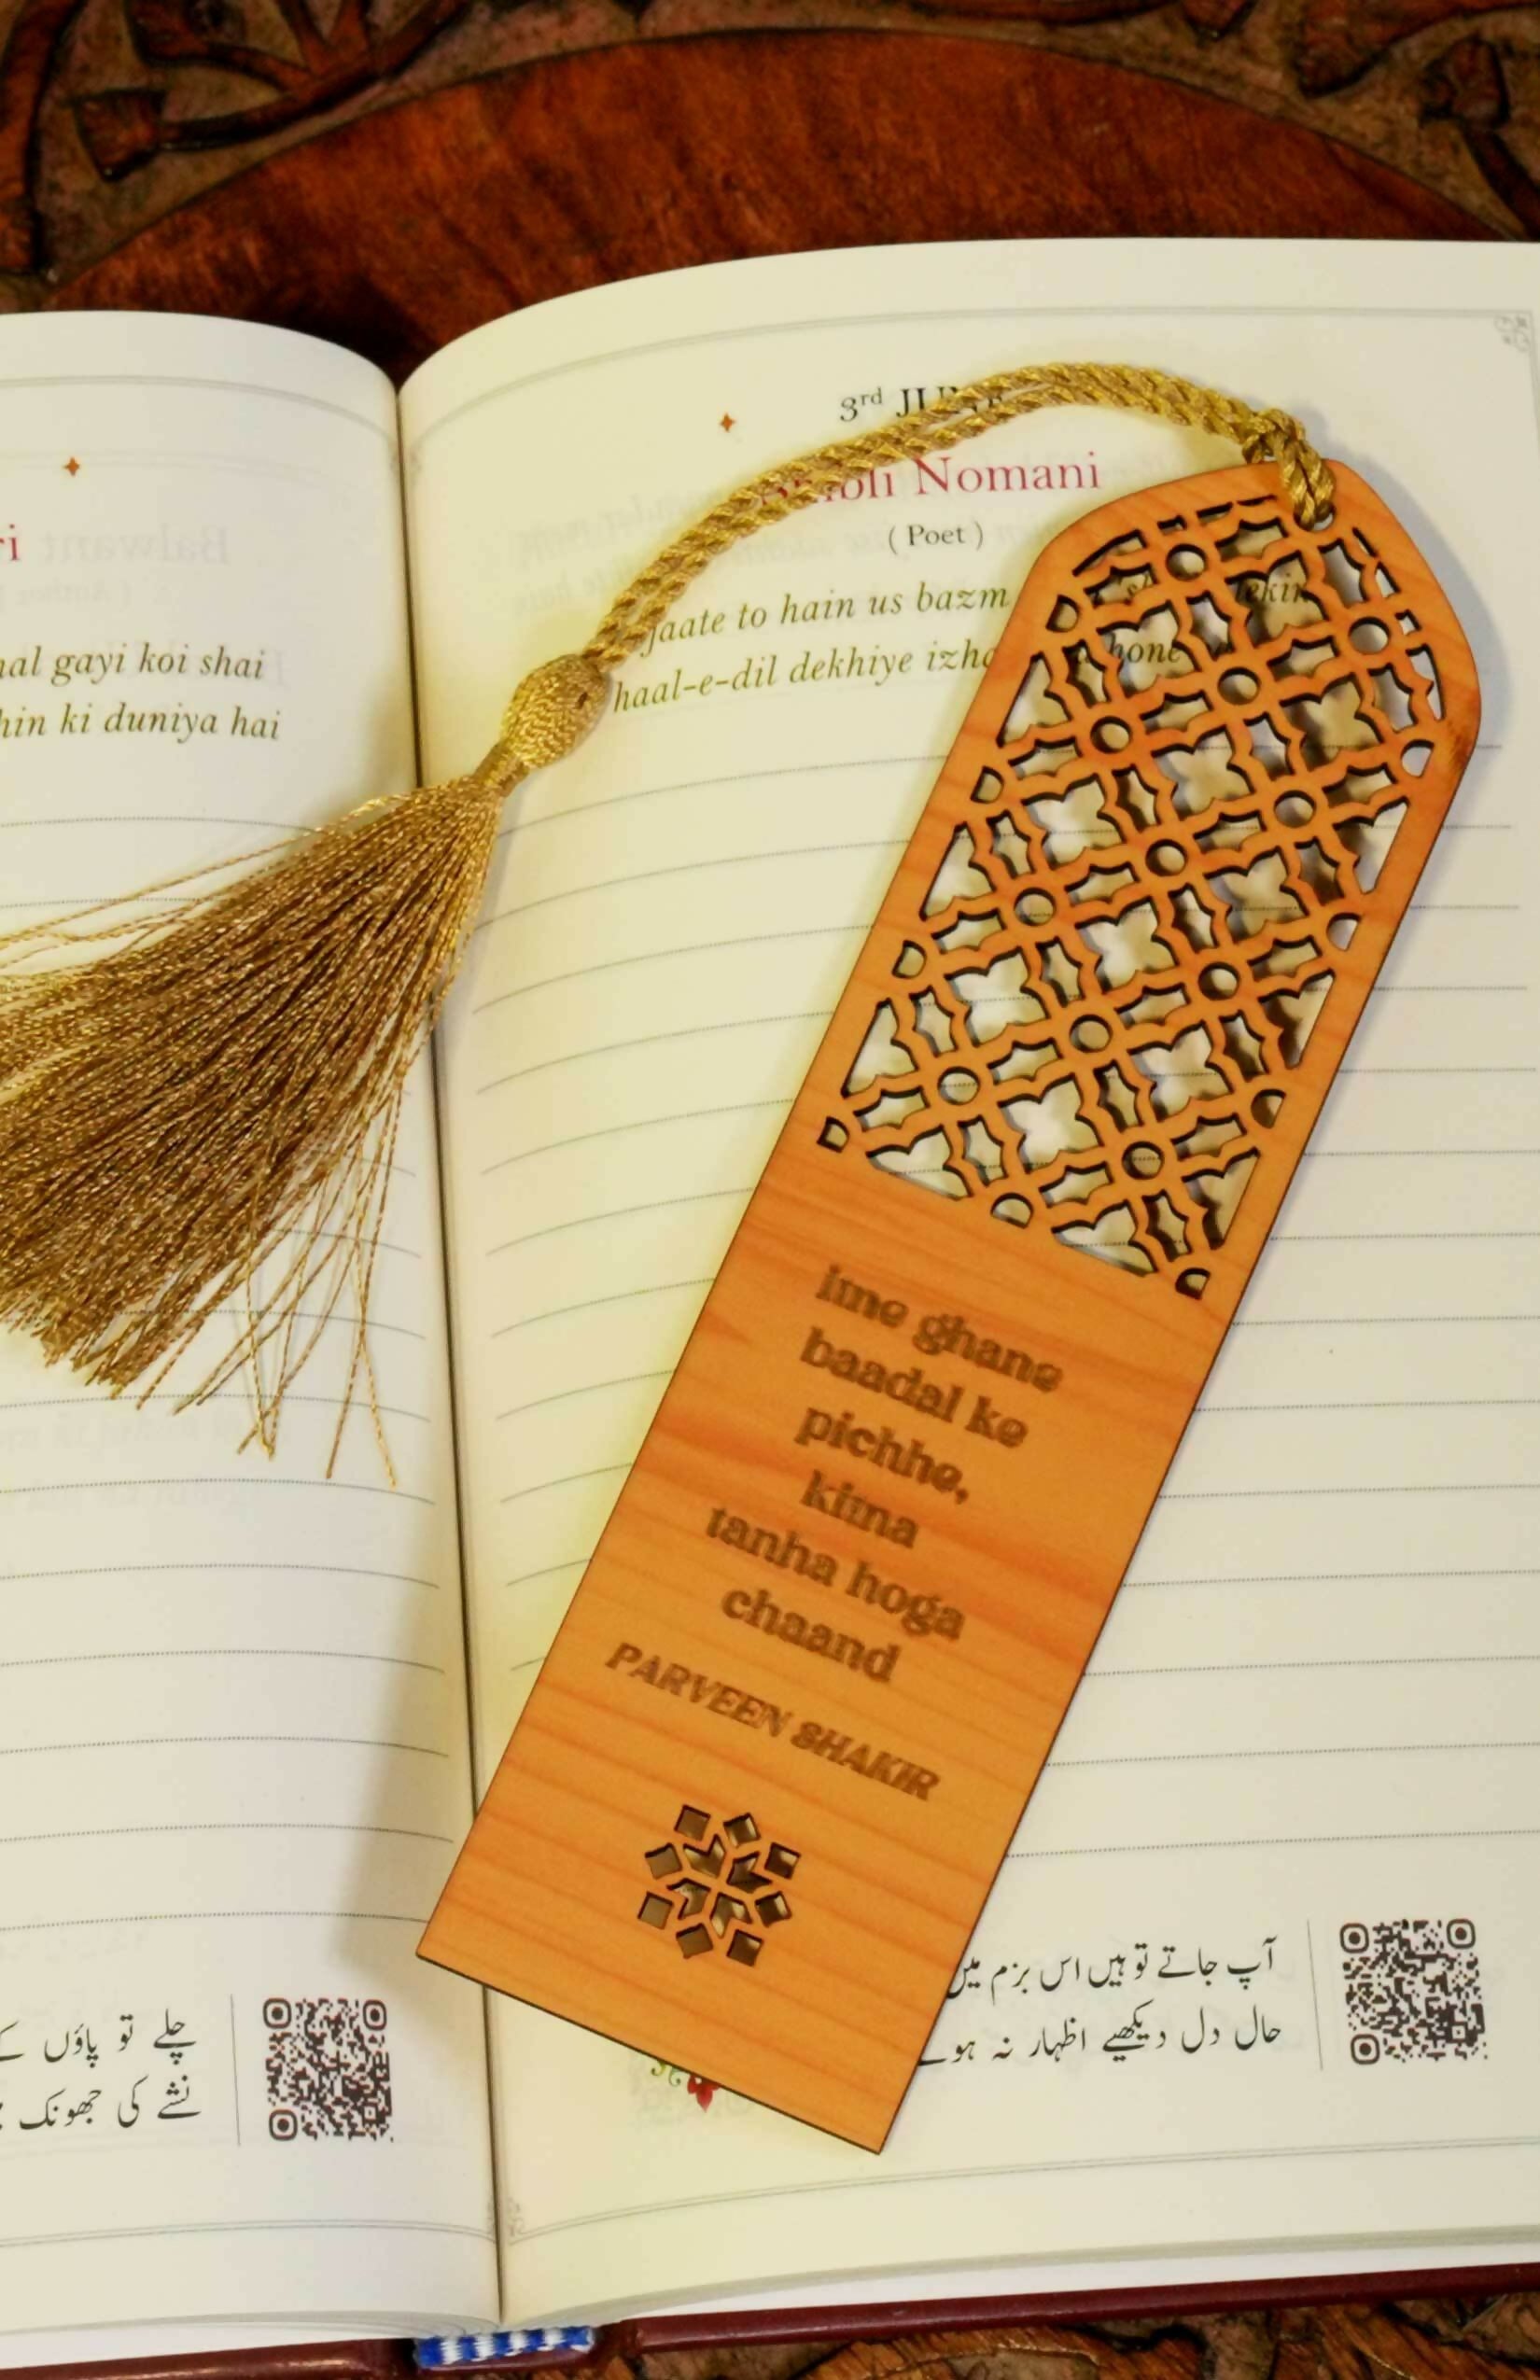 nal gayi koi shai
hin ki duniya hai
چلے تو پاؤں کے
نشے کی جھونک
3rd JUNE
Shibli Nomani
( Poet )
jaate to hain us bazm
haal-e-dil dekhiye
itne ghane
baadal ke
pichhe,
kitna
tanha hoga
chaand
PARVEEN SHAKIR
آپ جاتے تو ہیں اس بزم میں
حال دل دیکھیے اظہار نہ ہونے